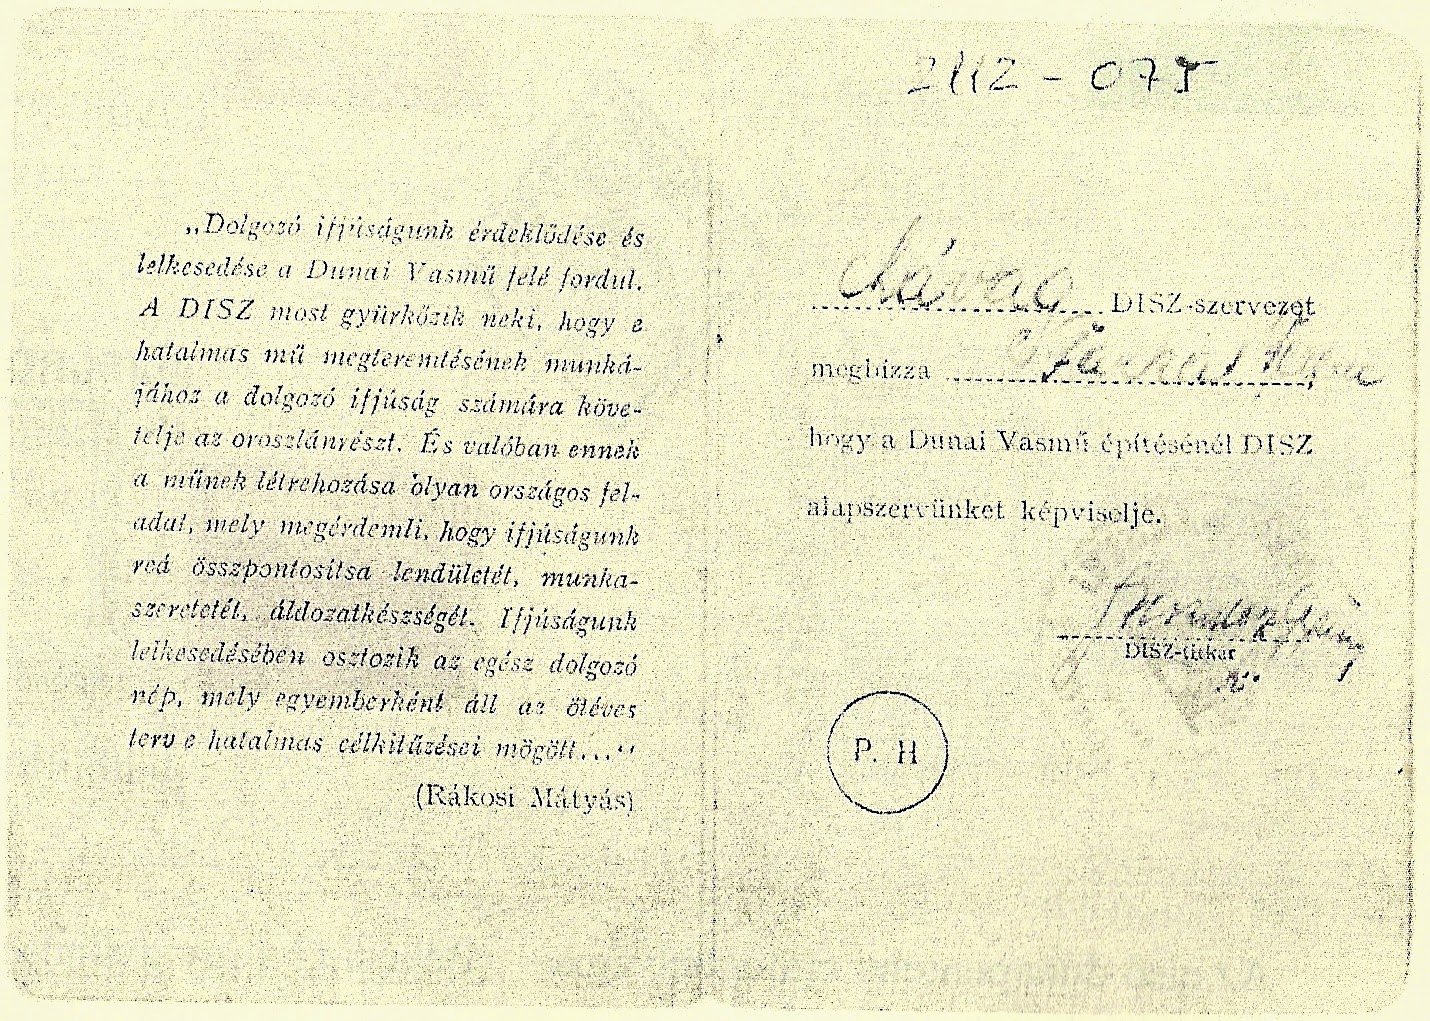 „Dolgozó ifjúságunk érdeklődése és
lelkesedése a Dunai Vasmű felé fordul.
A DISZ most gyürkőzik neki, hogy e
hatalmas mű megteremtésének munká-
jához a dolgozó ifjúság számára köve-
telje az oroszlánrészt. És valóban ennek
a műnek létrehozása olyan országos fel-
adat, mely megérdemli, hogy ifjúságunk
reá összpontosítsa lendületét, munka-
szeretetét, áldozatkészségét. Ifjúságunk
lelkesedésében osztozik az egész dolgozó
nép, mely egyemberként áll az ötéves
terv e hatalmas célkitűzései mögött...“
(Rákosi Mátyás)
2112-075
DISZ-szervezet
megbízza
hogy a Dunai Vasmű építésénél DISZ
alapszervünket képviselje.
DISZ-titkár
P. H